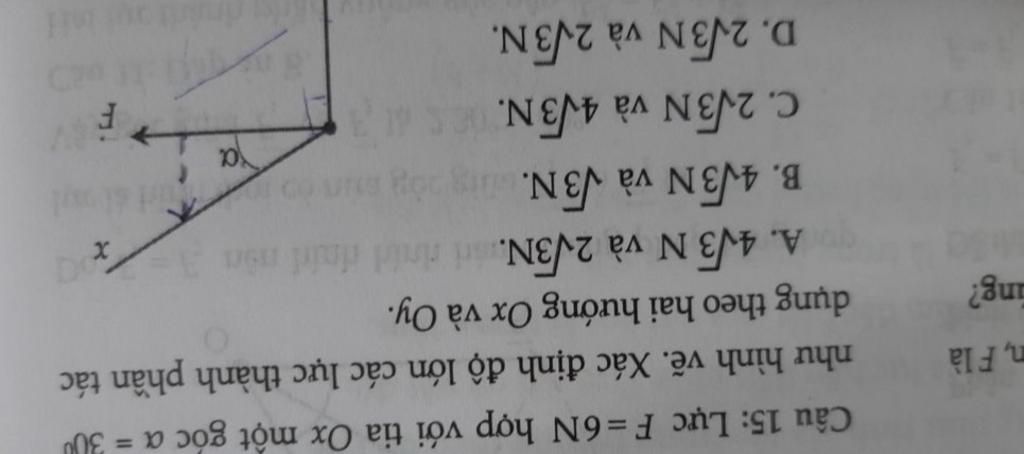 Câu 15: Lực F = 6N hợp với tia Ox một góc α = 30⁰
như hình vẽ. Xác định độ lớn các lực thành phần tác
dụng theo hai hướng Ox và Oy.
A. 4√3 N và 2√3N.
B. 4√3 N và √3N.
C. 2√3 N và 4√3N.
D. 2√3N và 2√3N.
x
α
F
F là